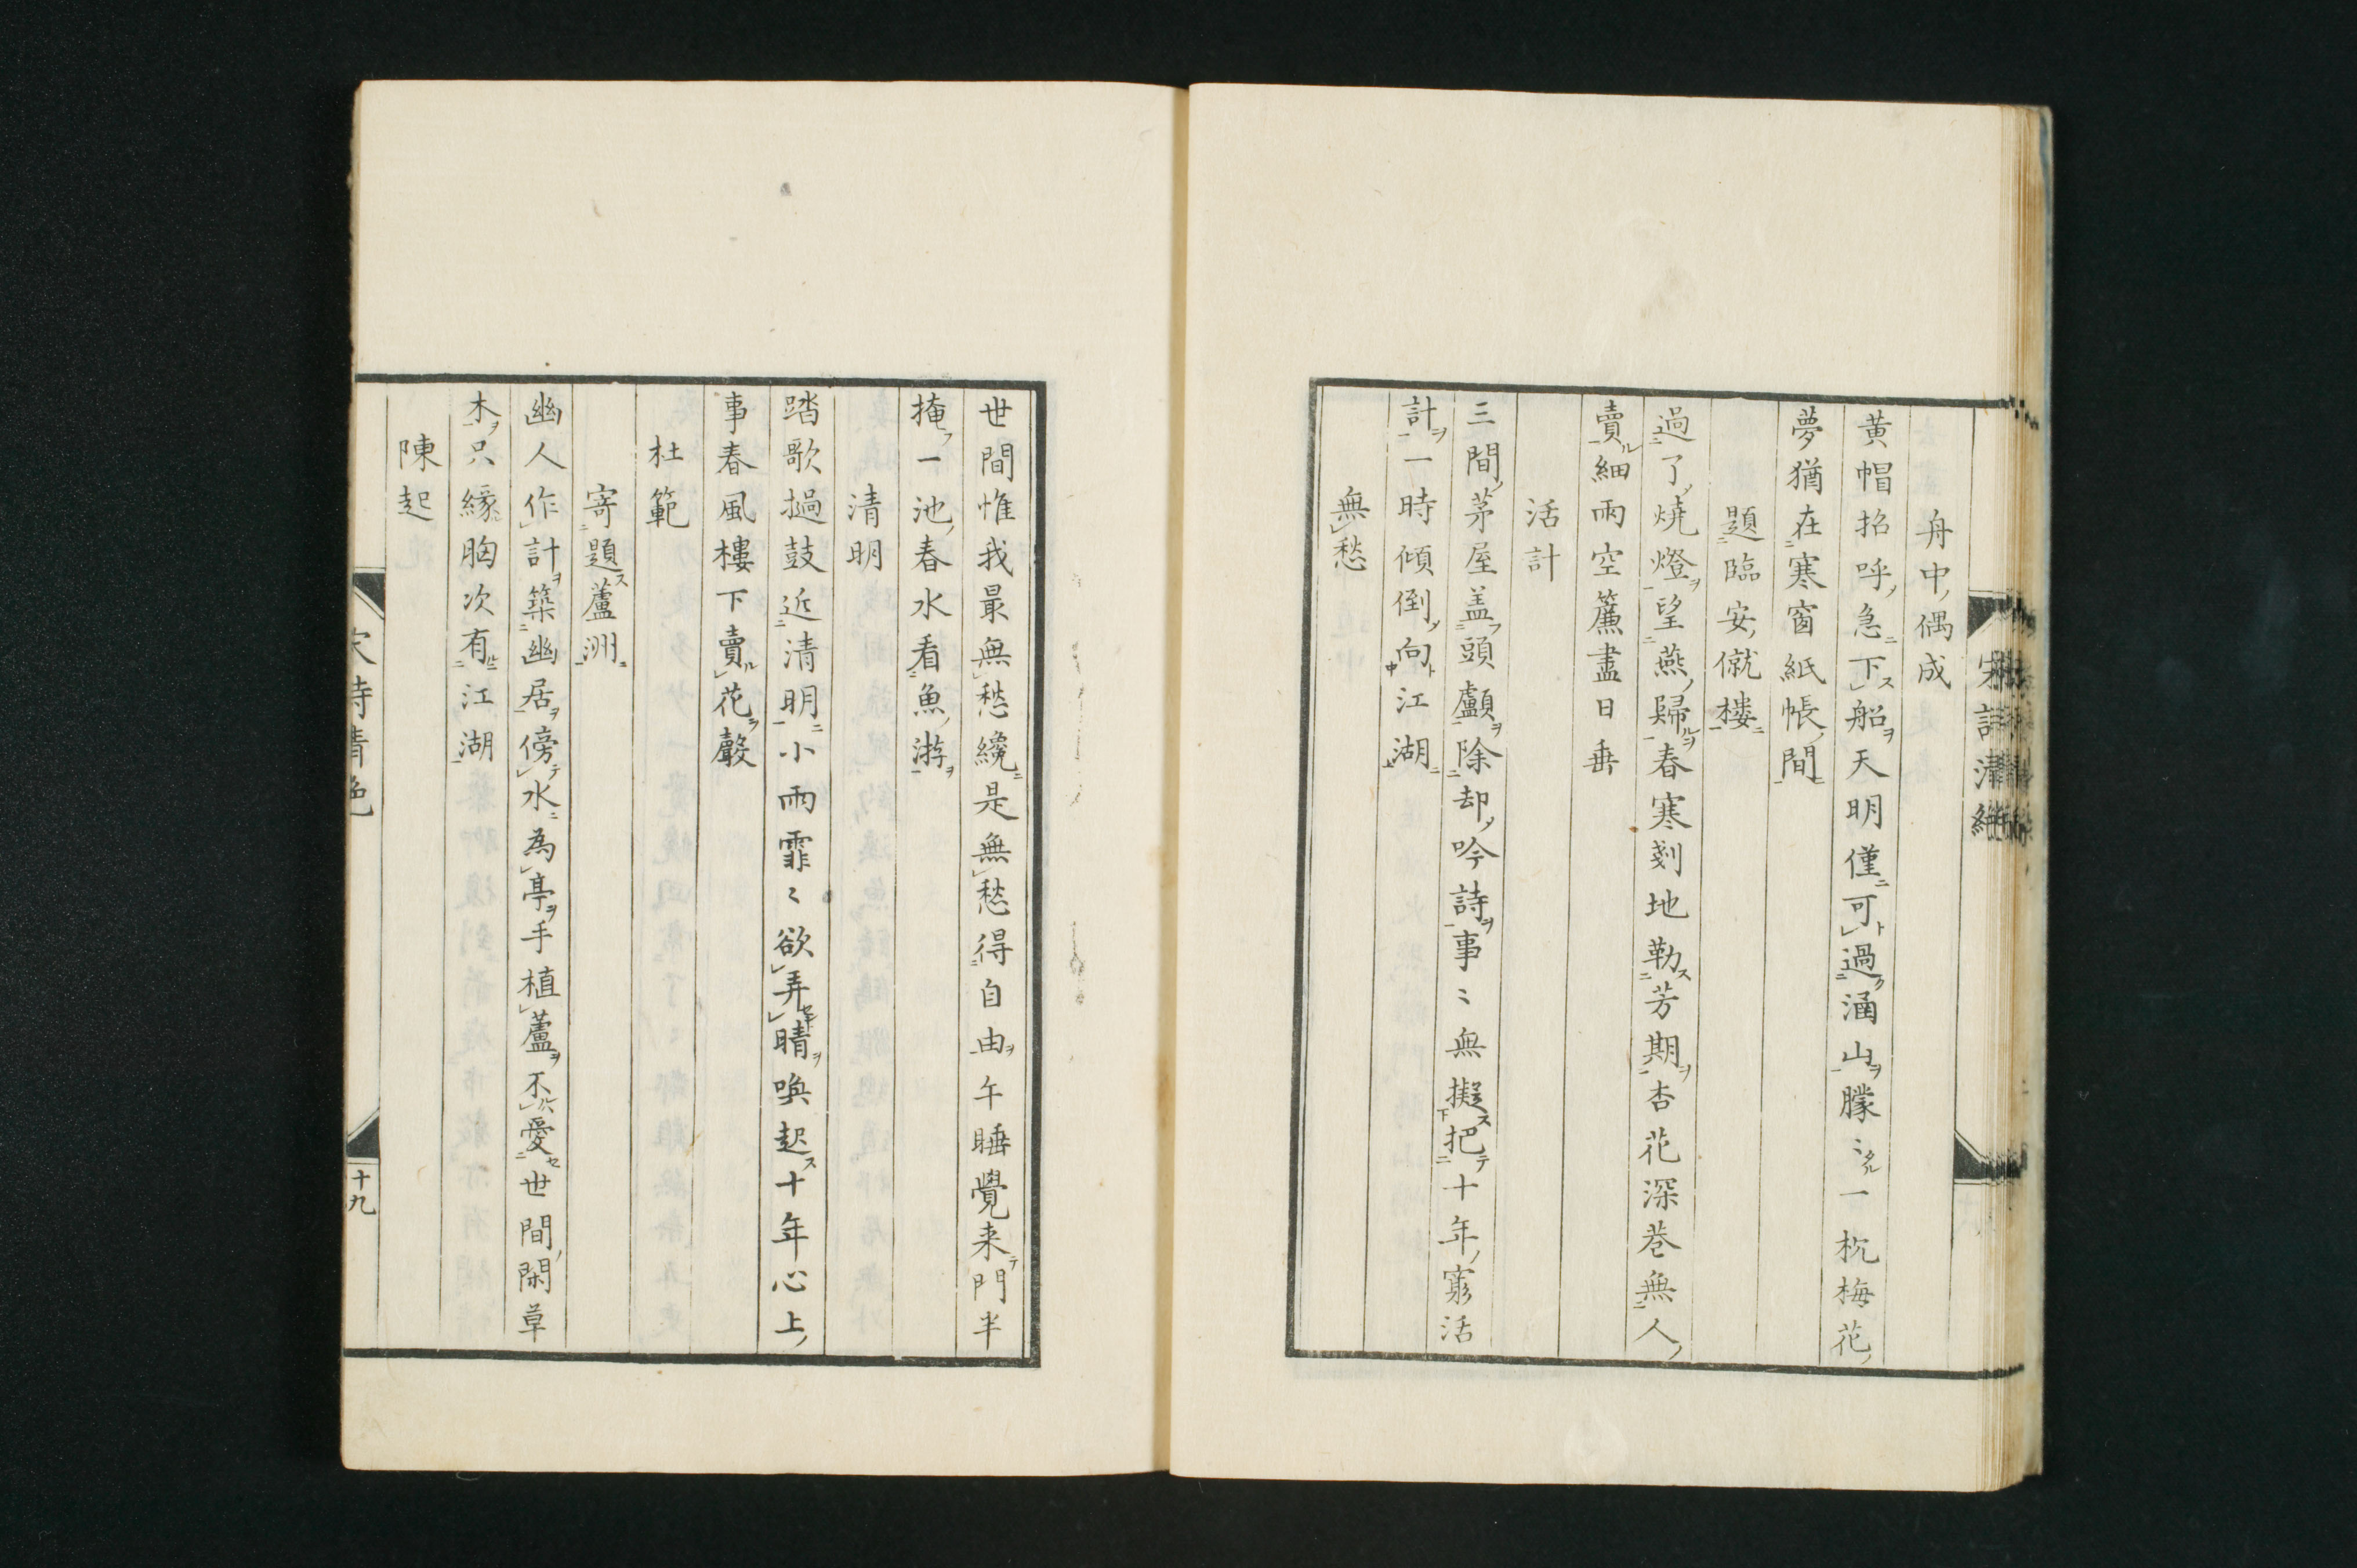 舟中偶成
黄帽招呼急下船天明僅可過涵山朦〻一枕梅花
夢猶在寒窗紙帳間
題臨安僦樓
過了燒燈望燕歸春寒剗地勒芳期杏花深巷無人
賣細雨空簾盡日垂
活計
三間茅屋盖頭顱除却吟詩事〻無擬把十年窮活
計一時傾倒向江湖
無愁
世間惟我最無愁纔是無愁得自由午睡覺来門半
掩一池春水看魚游
清明
踏歌撾鼓近清明小雨霏〻欲弄晴喚起十年心上
事春風樓下賣花聲
杜範
寄題蘆洲
幽人作計築幽居傍水為亭手植蘆不愛世間閑草
木只緣胸次有江湖
陳起
十九